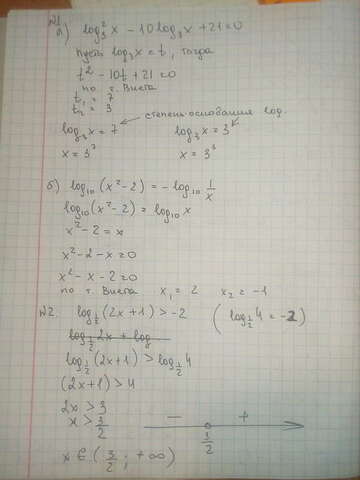 №1
а) log₃² x − 10 log₃ x + 21 = 0
Пусть log₃ x = t, тогда
t² − 10t + 21 = 0
по т. Виета
t₁ = 7
t₂ = 3
степень основания log
log₃ x = 7 log₃ x = 3
x = 3⁷ x = 3³
б) log₁₀ (x² − 2) = − log₁₀ 1/x
log₁₀ (x² − 2) = log₁₀ x
x² − 2 = x
x² − 2 − x = 0
x² − x − 2 = 0
по т. Виета x₁ = 2 x₂ = −1
№2. log_½ (2x + 1) > −2 (log_½ 4 = −2)
log_½ 2x + log
log_½ (2x + 1) > log_½ 4
(2x + 1) > 4
2x > 3
x > 3/2
− +
3/2
x ∈ (3/2 ; +∞)